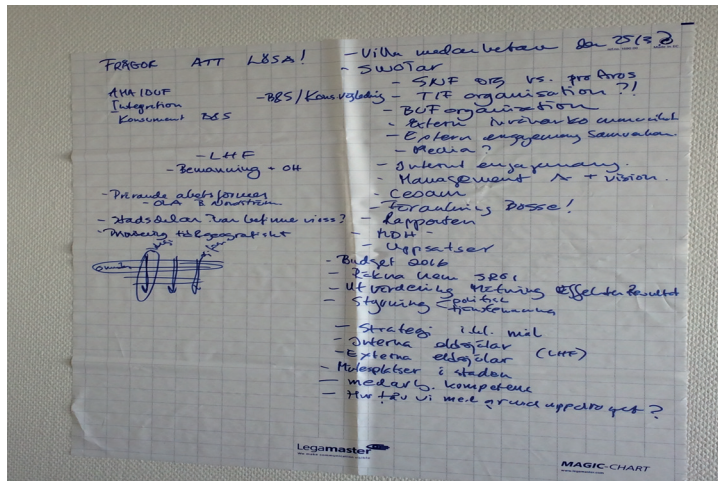 FRÅGOR ATT LÖSA!
Integration
Konsument B&S
- B&S / Konsvägledning
- LHF
- Bemanning + OH
- Prövande arbetsformer
- OLA B
- Stadsdelar?
- Villa medarbetare den 25/3
- SWOTar
- SNF org vs. pro Aros
- TIF organisation?!
- BUF organisation
- Extern
- Extern engagemang Samverkan
- Media?
- Internt engagemang.
- Management A + vision.
- Cesam
- Förankring Bosse!
- Rapporten
- MDH -
- Uppsatser
- Budget 2016
- Räkna hem SROI
- Utvärdering Mätning effekter Resultat
- Styrning politik
tjänstemanna
- Strategi inkl. mål
- Interna eldsjälar
- Externa eldsjälar (LHF)
- Mötesplatser i staden
- medarb. kompetens
- Hur får vi med grunduppdraget?
Legamaster
MAGIC-CHART